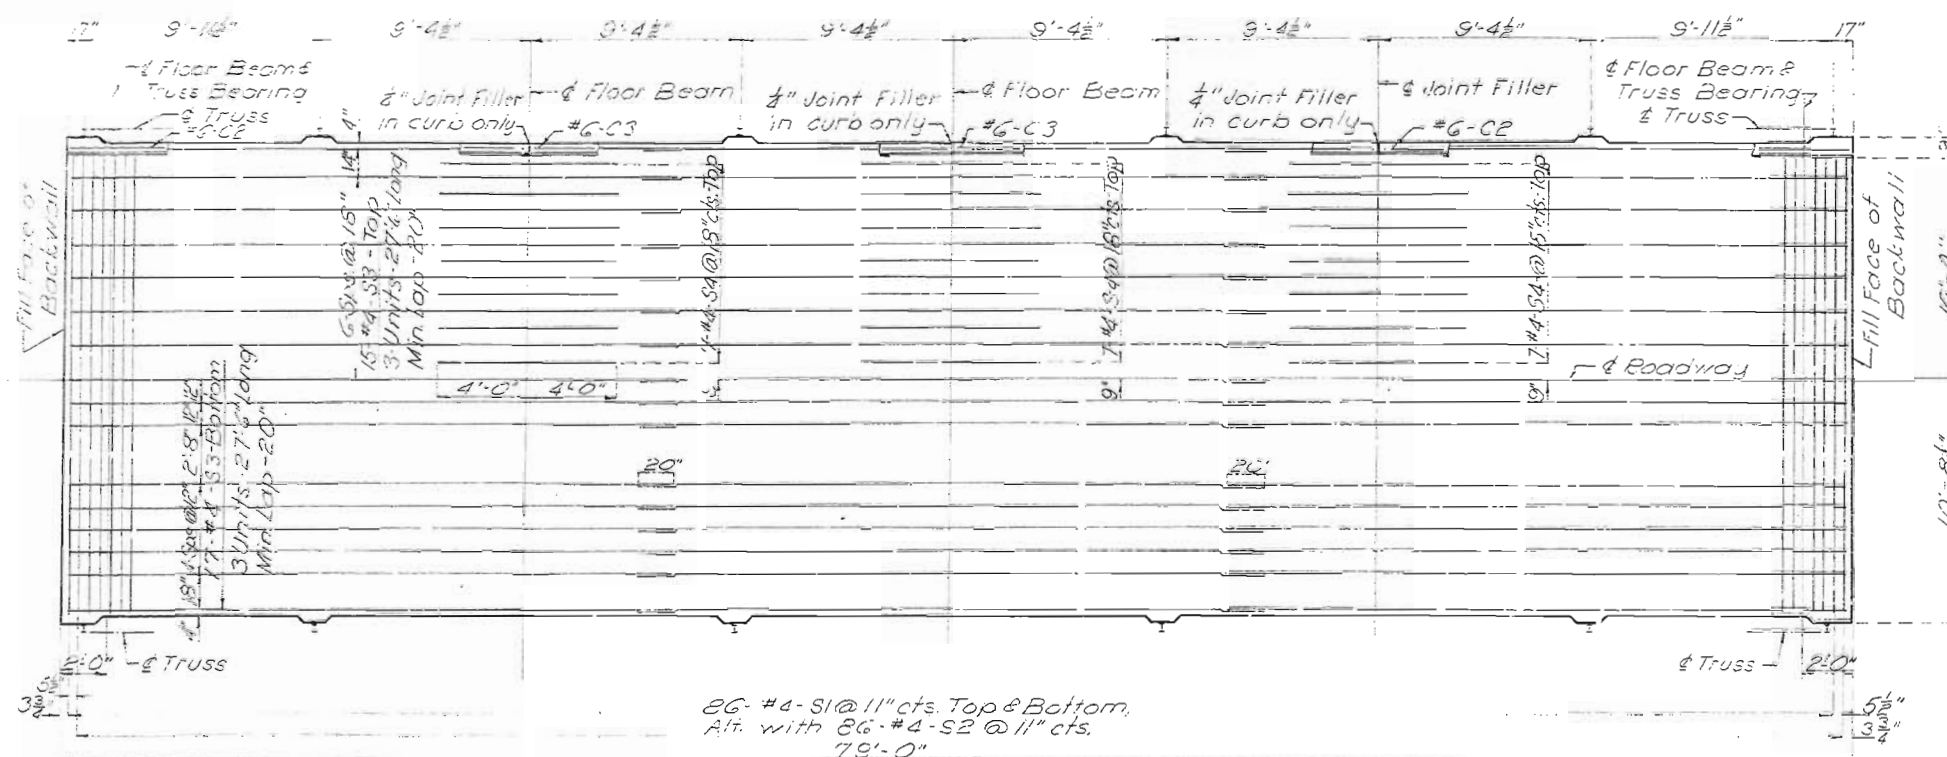 17" 9'-11½" 9'-4½" 9'-4½" 9'-4½" 9'-4½" 9'-4½" 9'-4½" 9'-11½" 17"
℄ Floor Beam &
Truss Bearing
℄ Truss
#6-C2
¼" Joint Filler
in curb only
℄ Floor Beam
#6-C3
¼" Joint Filler
in curb only
℄ Floor Beam
#6-C3
¼" Joint Filler
in curb only
℄ Joint Filler
#6-C2
℄ Floor Beam &
Truss Bearing
℄ Truss
4"
14"
Fill Face of
Backwall
6 Sps @ 15"
15-#4-S3-Top
3-Units-27'-6" Long
Min. Lap-20"
7-#4-S4@15"cts. Top
7-#4-S4@15"cts. Top
9"
7-#4-S4@15"cts. Top
9"
Fill Face of
Backwall
℄ Roadway
4'-0" 4'-0"
18" 4-Sps@12" 2'-8" 12"
17-#4-S3-Bottom
3 Units-27'-6" Long
Min. Lap-20"
20" 20"
4"
2'-0" ℄ Truss
℄ Truss 2'-0"
3¾"
5½"
3¾"
86-#4-S1@11"cts. Top & Bottom,
Alt. with 86-#4-S2@11"cts.
79'-0"